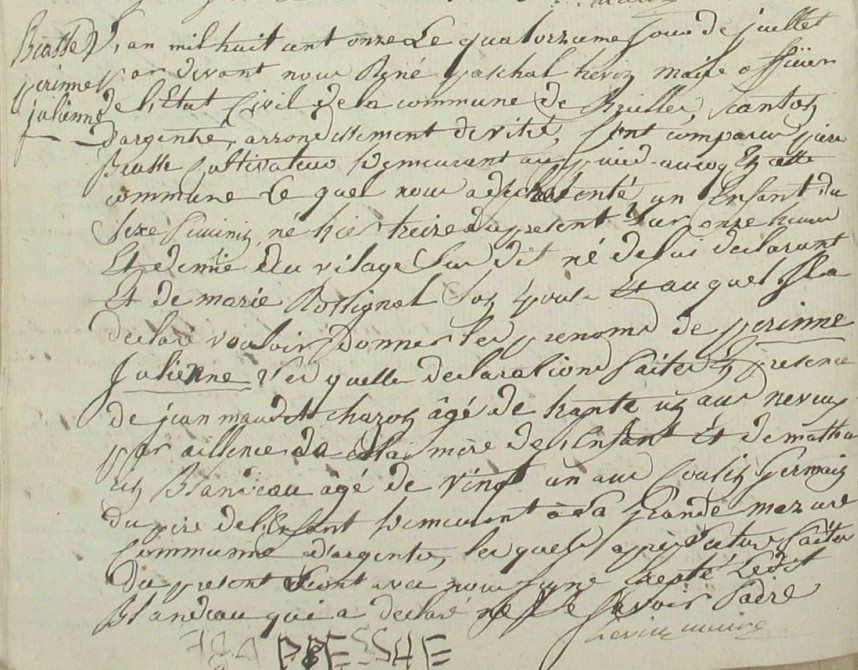 Biasse perinne julienne
L'an mil huit cent onze Le quatorzieme jour de juillet
par devant nous René paschal hevin maire officier
de l'Etat Civil de la commune de Brielles, canton
d'argentré, arrondissement de vitré, Sont comparu piere
Biasse Cultivateur demeurant au cette
commune Le quel nous a présenté un Enfant du
Sexe feminin, né hier treize du present Sur onze heures
Et demie du village Sus dit né de lui declarant
Et de marie Rossignol son Epouse Et auquel Il a
declaré vouloir donner les prenoms de perinne
Julienne Les quelles declarations faites En presence
de jean maudet âgé de trante un ans neveu
par aillence de la mere de l'Enfant Et de mathu
rin Blandeau âgé de vingt un ans Cousin Germain
du pere de l'Enfant demeurant à La Grande mazure
Commune d'argentré, les quels après Lecture faites
du present ont avec nous signé Excepté Ledit
Blandeau qui a declaré ne Le Savoir fadire
hevin maire